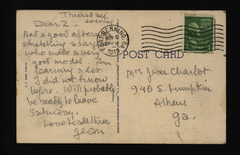 Thursday
evening
Dear Z.
Had a good afternoon
sketching
who made a very
good model. Am
learning a lot
I did not know
before. Will probably
be ready to leave
Saturday.
Love to all three
Jean
POST CARD
Mrs Jean Charlot
980 S. Lumpkin
Athens
Ga.